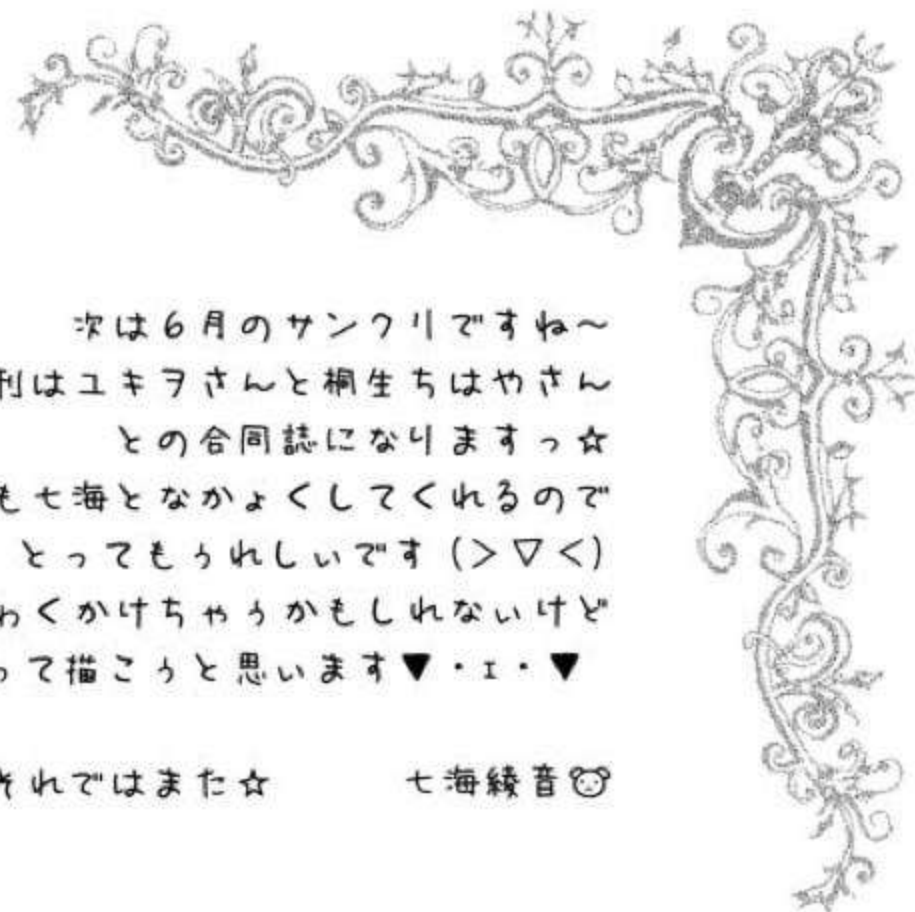 次は6月のサンクリですね～
刊はユキヲさんと桐生ちはやさん
との合同誌になりますっ☆
も七海となかょくしてくれるので
とってもぅれしぃです(＞▽＜)
わくかけちゃぅかもしれないけど
って描こぅと思います▼・ｪ・▼
それではまた☆　　七海綾音